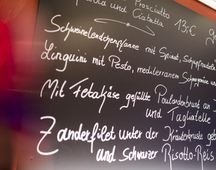 Prosciutto 13€
Rucola und Ciabatta
Schweinelendchenpfanne mit Spinat, Schupfnudeln
Linguini mit Pesto, mediterranem Schweine
Mit Fetakäse gefüllte Poulardenbrust an
und Tagliatelle
Zanderfilet unter der Kräuterkruste
und Schwarzer Risotto-Reis